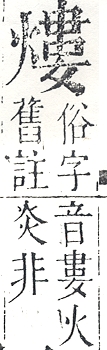 熡
俗字
舊註
音婁火
炎非